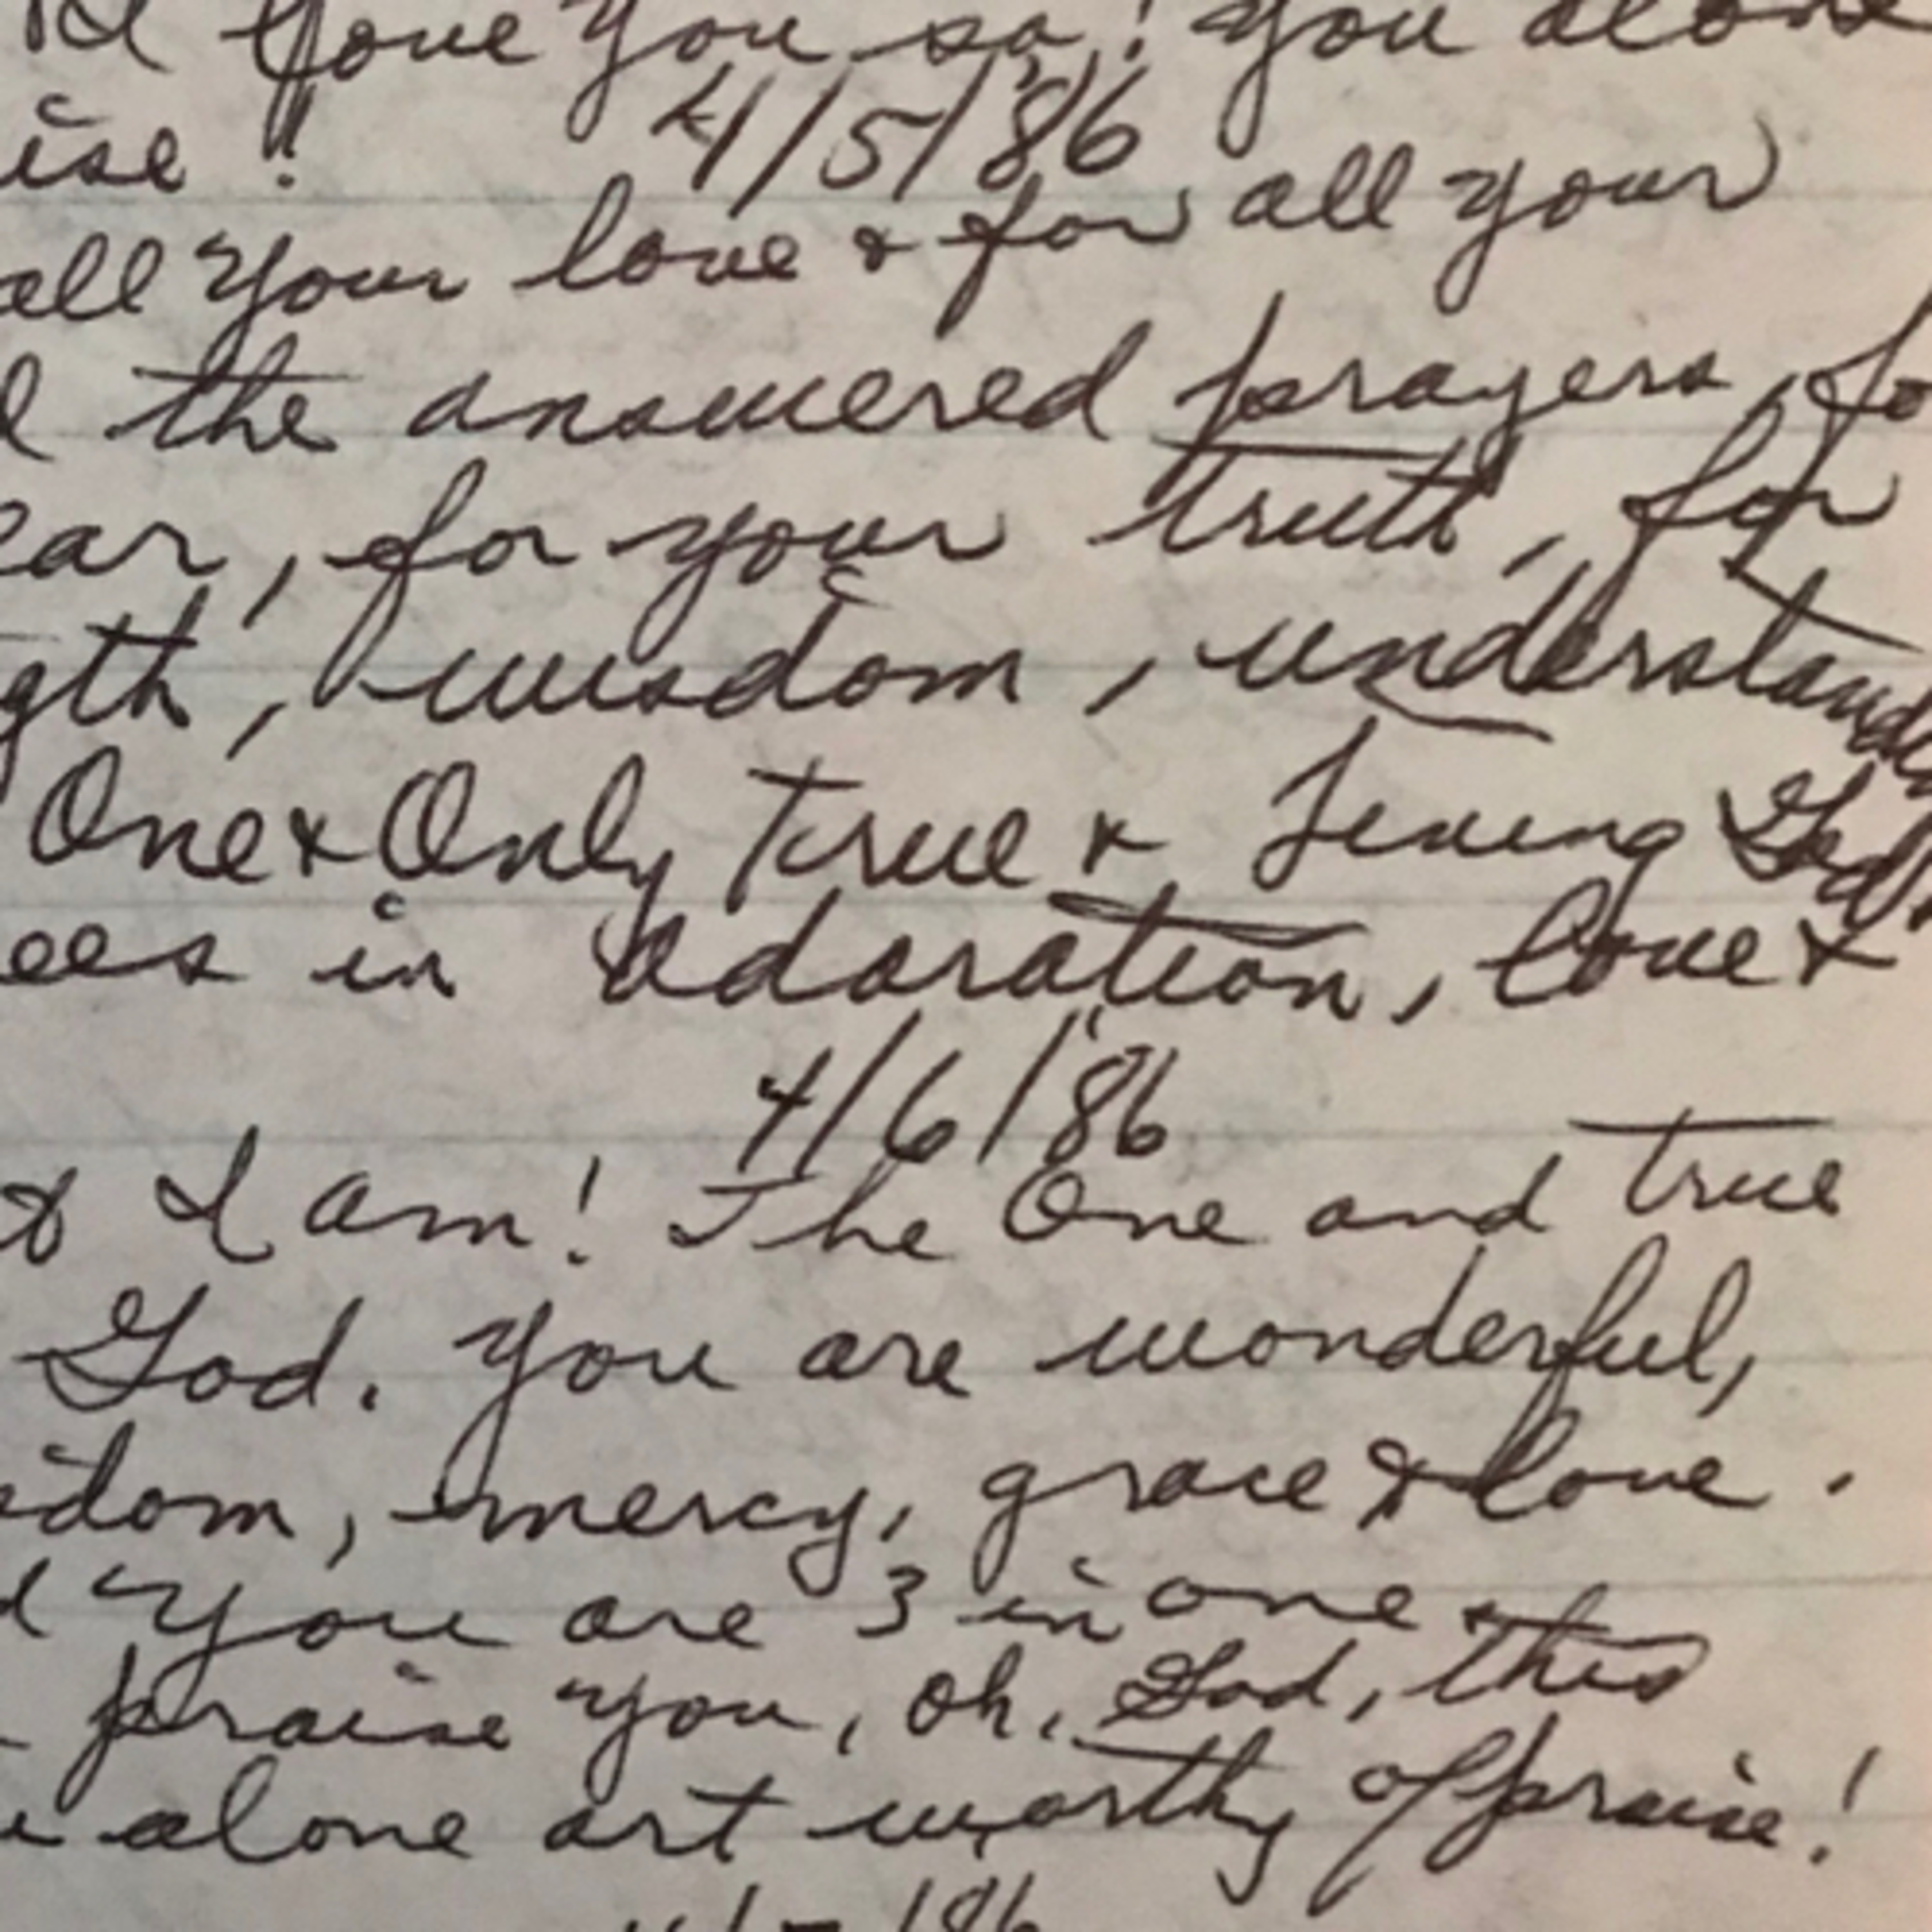 I love You so! You alone
ise!
4/5/'86
all Your love & for all your
l the answered prayers, fo
ear, for your truth, for
gth, wisdom, understand
One & Only True & Living God!
ees in adoration, love &
4/6/'86
I am! The One and true
God. You are wonderful,
sdom, mercy, grace & love.
d You are 3 in one &
praise You, oh, God, this
alone art worthy of praise!